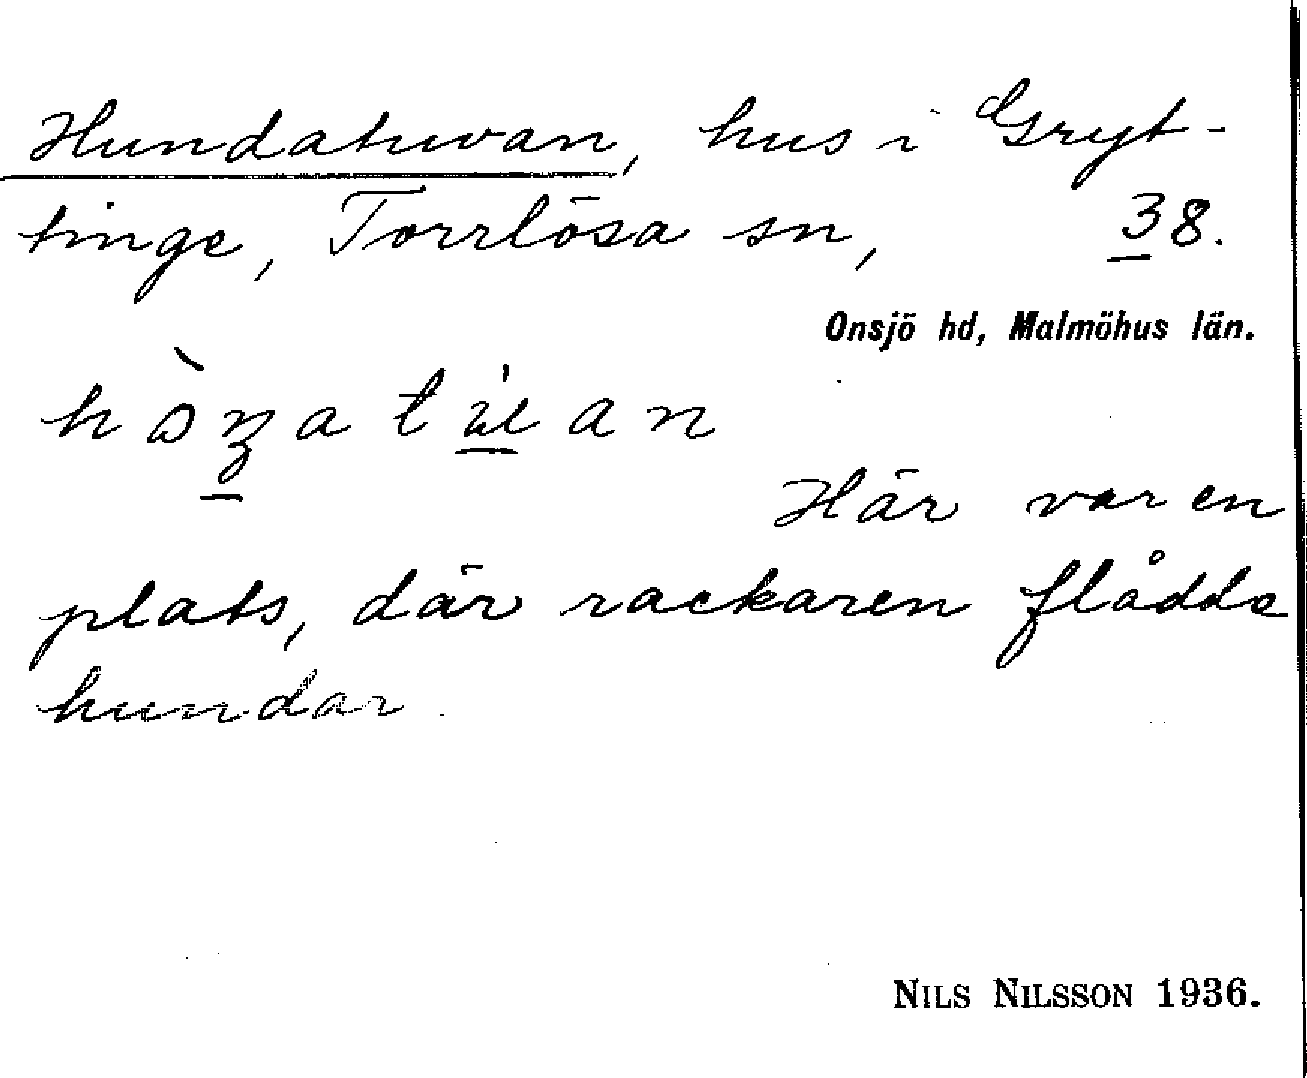 Hundatuvan, hus i Gryt-
tinge, Torrlösa sn, 38.
Onsjö hd, Malmöhus län.
Här var en
plats, där rackaren flådde
hundar.
NILS NILSSON 1936.